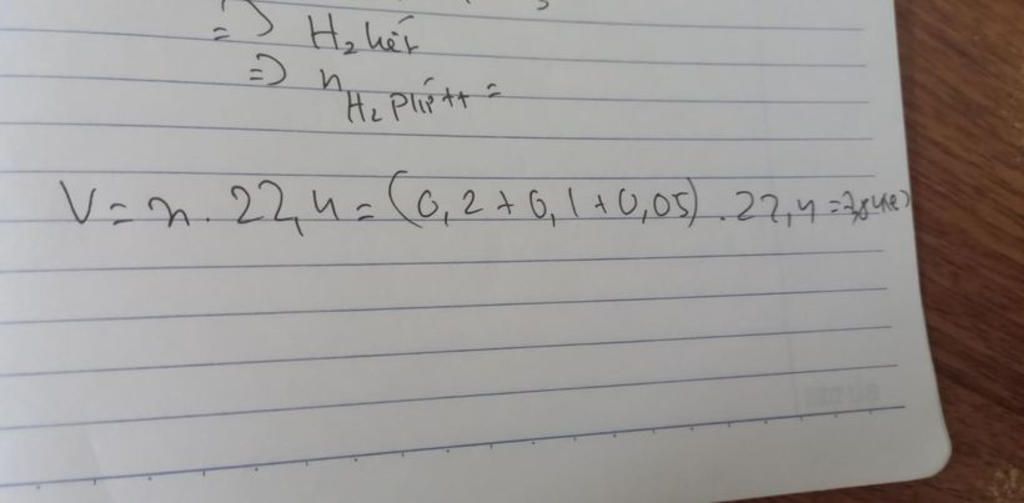 => H₂ hết
=> n H₂ pứ tt =
V = n . 22,4 = (0,2 + 0,1 + 0,05) . 22,4 = 7,84(l)